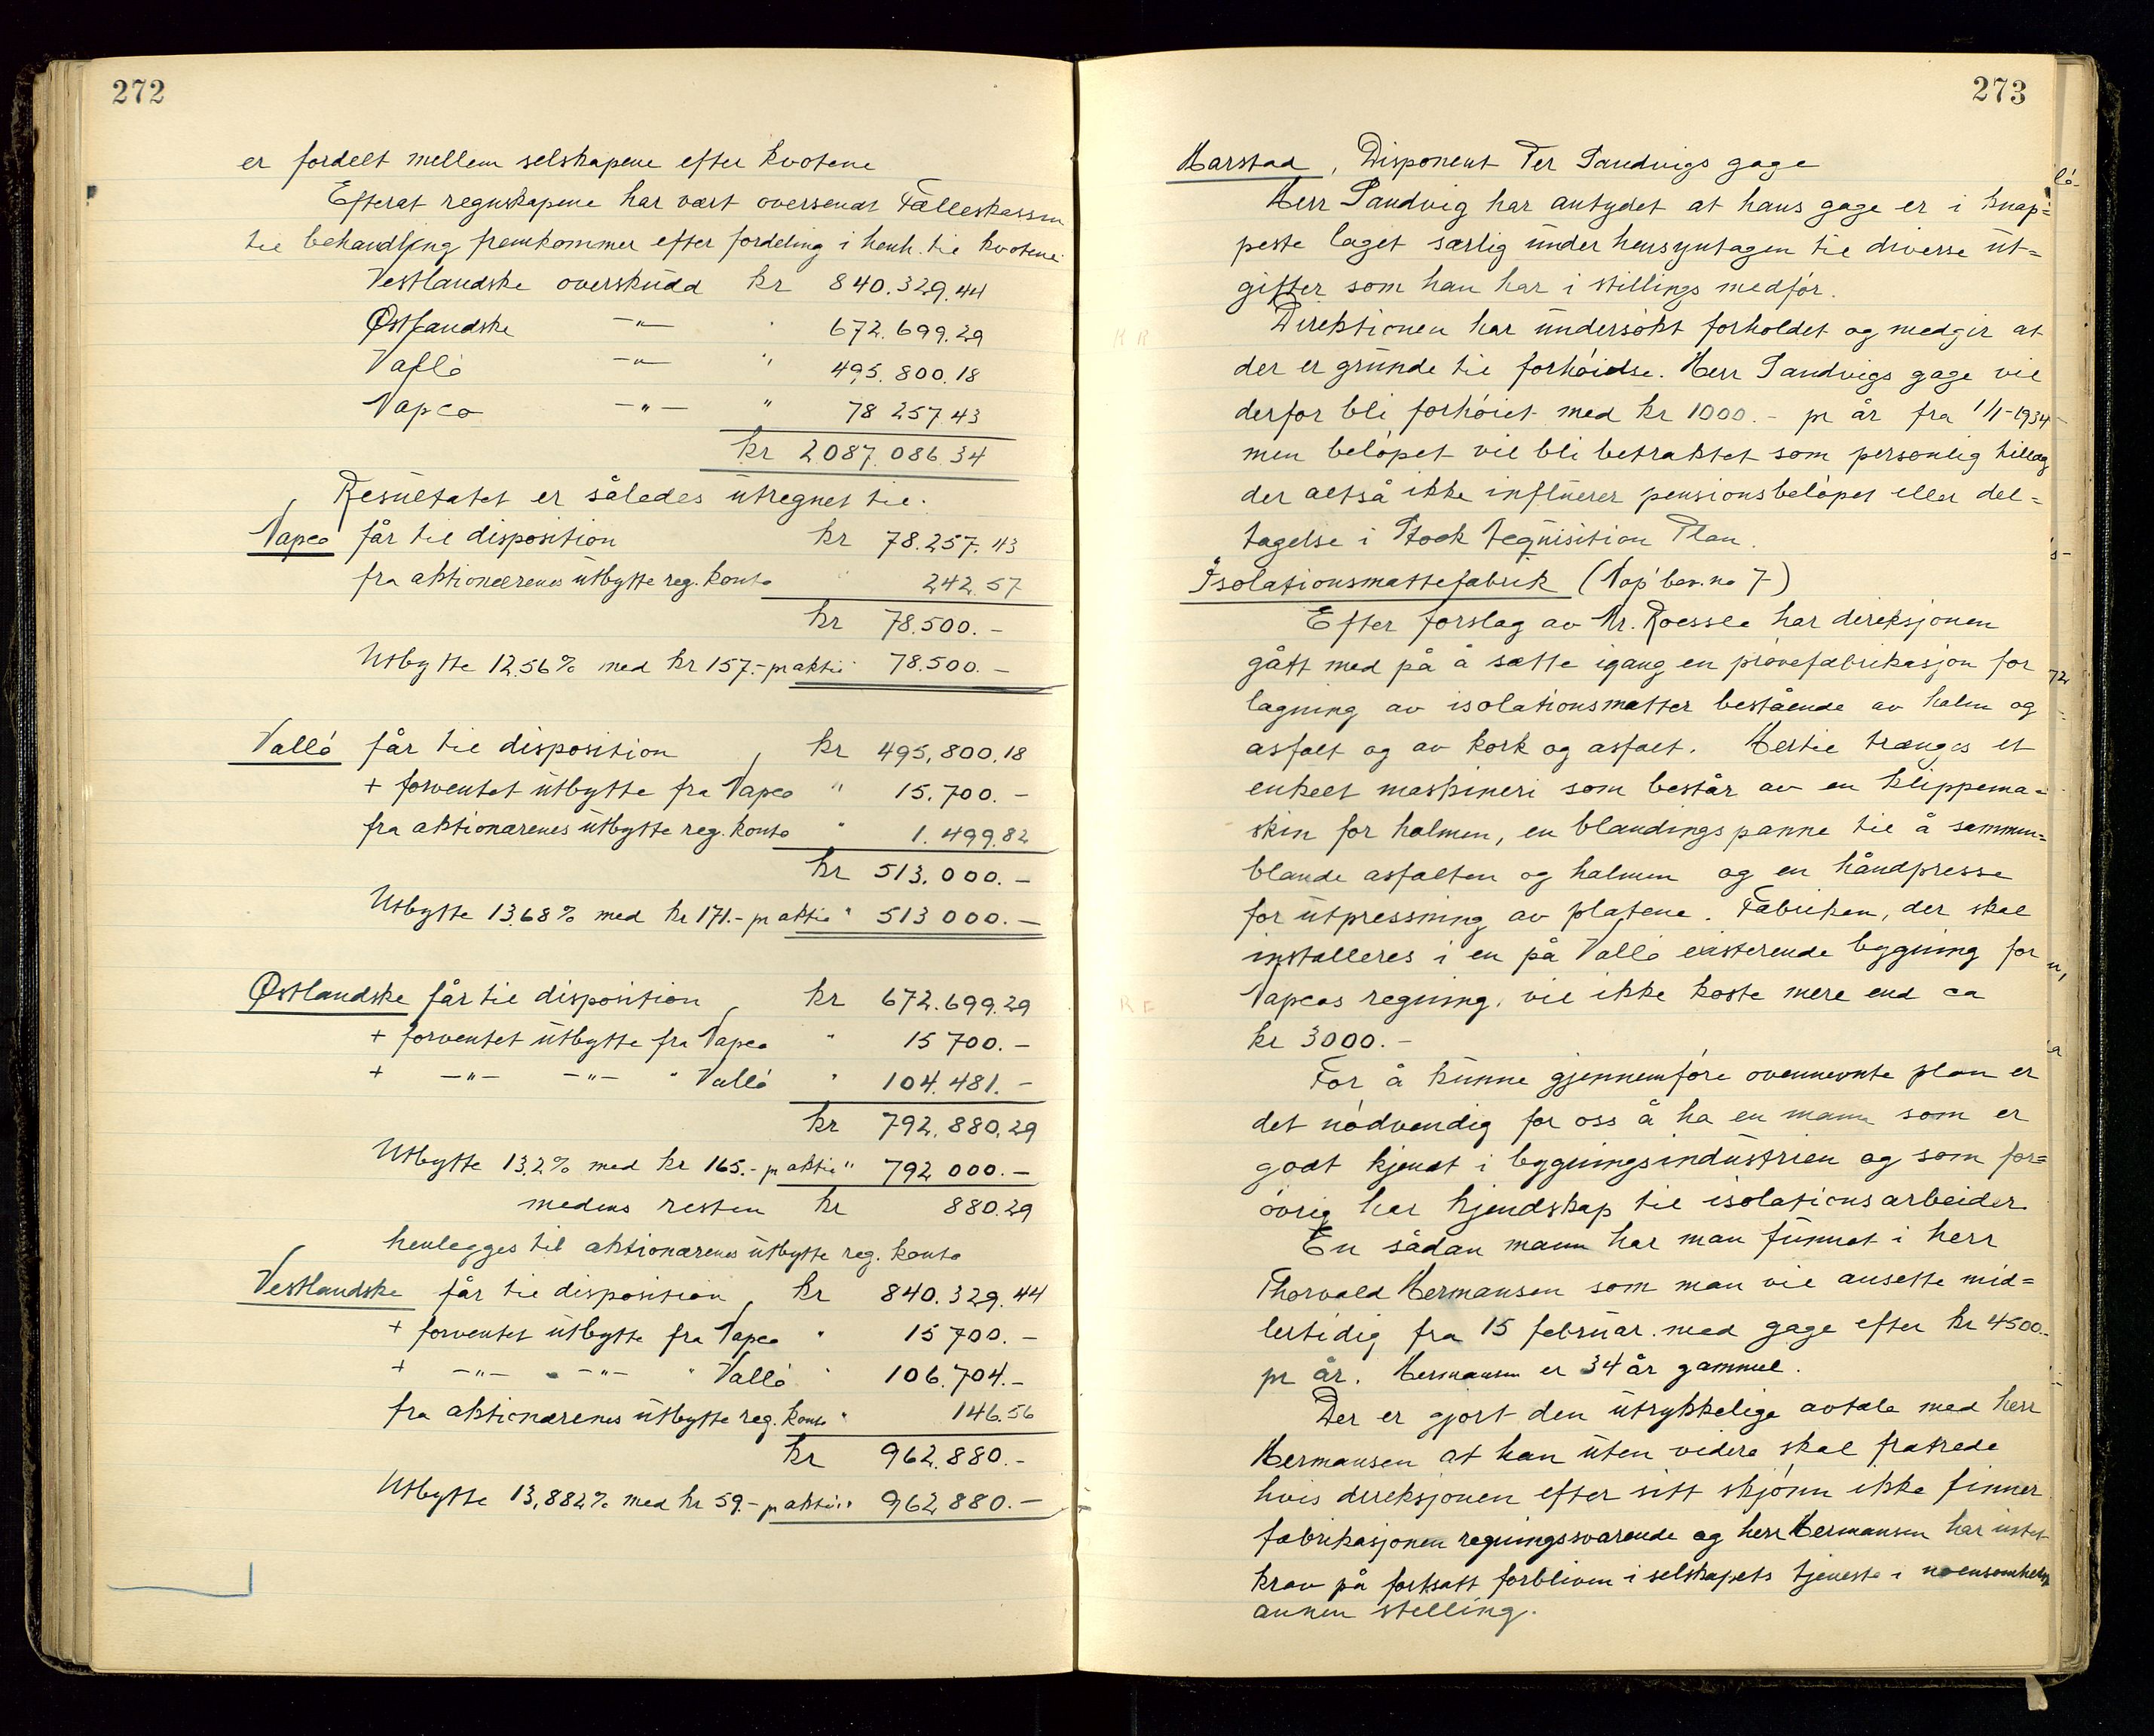 272
er fordelt mellem selskapene efter kvotene
Efterat regnskapene har vært oversendt Fælleskassen
til behandling fremkommer efter fordeling i henh. til kvotene:
Vestlandske overskudd kr 840.329.44
Østlandske —"— " 672.699.29
Vallö —"— " 495.800.18
Vapco —"— " 78 257.43
kr 2.087.086.34
Resultatet er således utregnet til:
Vapco får til disposition kr 78.257.43
fra aktionærenes utbytte reg. konto " 242.57
kr 78.500.—
Utbytte 12.56% med kr 157.- pr aktie " 78.500.—
Vallö får til disposition, kr 495,800.18
+ forventet utbytte fra Vapco " 15.700.—
fra aktionærenes utbytte reg. konto " 1.499.82
kr 513.000.—
Utbytte 13.68% med kr 171.- pr aktie " 513 000.—
Østlandske får til disposition, kr 672.699.29
+ forventet utbytte fra Vapco " 15 700.—
+ —"— —"— " Vallö " 104.481.—
kr 792.880.29
Utbytte 13.2% med kr 165.- pr aktie " 792 000.—
medens resten kr 880.29
henlegges til aktionærenes utbytte reg. konto
Vestlandske får til disposition, kr 840.329.44
+ forventet utbytte fra Vapco " 15 700.—
+ —"— " —"— " Vallö " 106.704.—
fra aktionærenes utbytte reg. konto " 146.56
kr 962.880.—
Utbytte 13,882% med kr 59.- pr aktie " 962 880.—
273
Harstad, Disponent Per Sandvigs gage
Herr Sandvig har antydet at hans gage er i knap=
peste laget særlig under hensyntagen til diverse ut=
gifter som han har i stillings medfør.
Direktionen har undersøkt forholdet og medgir at
der er grunde til forhöielse. Herr Sandvigs gage vil
derfor bli forhöiet med kr 1000.- pr år fra 1/1-1934
men belöpet vil bli betraktet som personlig tillæg
der altså ikke influerer pensionsbelöpet eller del=
tagelse i Stock Acquisition Plan.
Isolationsmattefabrik (Vap' bev. no 7)
Efter forslag av Mr. Roessle har direksjonen
gått med på å sætte igang en prövefabrikasjon for
lagning av isolationsmatter bestående av halm og
asfalt og av kork og asfalt. Hertil trænges et
enkelt maskineri som består av en klippema=
skin for halmen, en blandingspanne til å sammen=
blande asfalten og halmen og en håndpresse
for utpressning av platene. Fabriken, der skal
installeres i en på Vallö existerende bygning for
Vapcos regning, vil ikke koste mere end ca
kr 3000.-
For å kunne gjennemföre ovennevnte plan er
det nödvendig for oss å ha en mann som er
godt kjendt i bygningsindustrien og som for=
övrig har kjendskap til isolationsarbeider.
En sådan mann har man funnet i herr
Thorvald Hermansen som man vil ansette mid=
lertidig fra 15 februar med gage efter kr 4500.-
pr år. Hermansen er 34 år gammel.
Der er gjort den utrykkelige avtale med herr
Hermansen at han uten videre skal fratrede
hvis direksjonen efter sitt skjönn ikke finner
fabrikasjonen regningssvarende og herr Hermansen har intet
krav på fortsatt forbliven i selskapets tjeneste i noensomhelst
annen stilling.